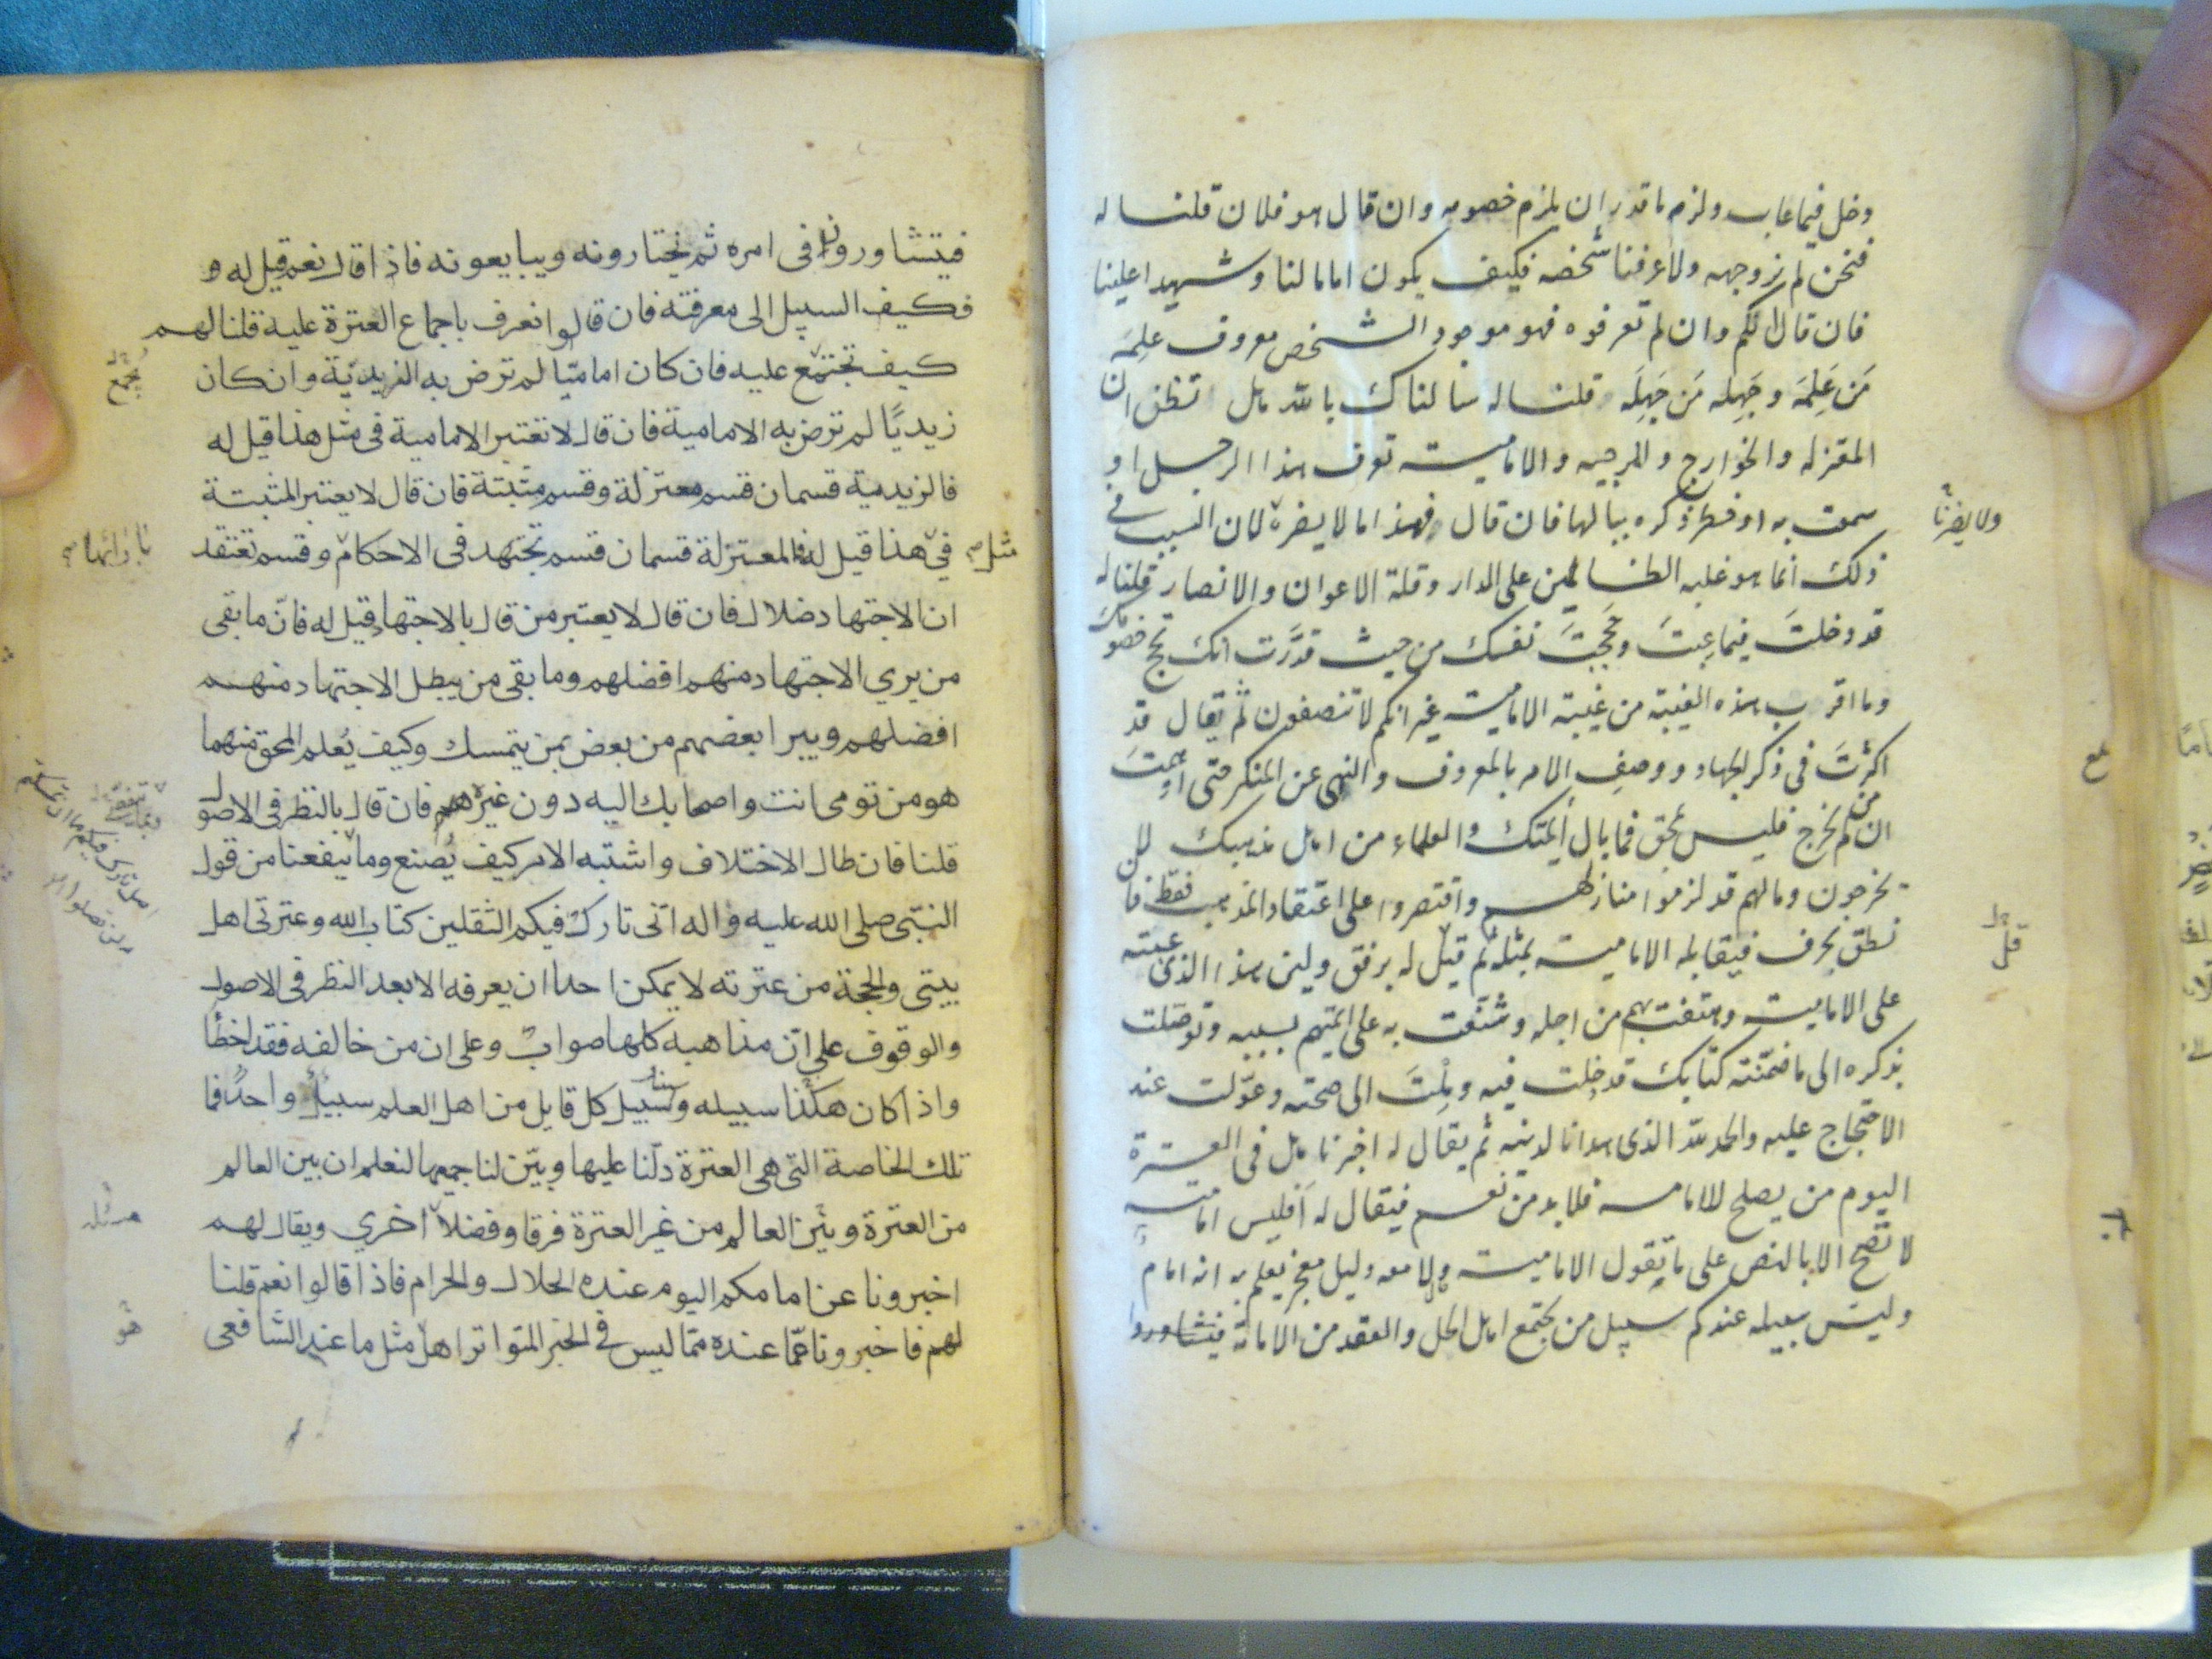 دخل فيما عاب ولزم ما قدر ان يلزم خصومه وان قال هو فلان قلنا له
فنحن لم نر وجهه ولا عرفنا شخصه فكيف يكون اماما لنا وشهيدا علينا
فان قال انكم وان لم تعرفوه فهو موجود الشخص معروف علمه
من علمه وجهله من جهله قلنا له سالناك بالله هل تظن ان
المعتزله والخوارج والمرجيه والاماميه تعرف هذا الرجل او
سمعت به او خطر ذكره ببالها فان قال فهذا ما لا يضره لان السبب في
ولا يضرنا
ذلك انما هو غلبه الظالمين على الدار وقلة الاعوان والانصار قلنا له
قد دخلت فيما عبت وحججت نفسك من حيث قدرت انك تحج خصومك
وما اقرب هذه الغيبة من غيبة الاماميه غير انكم لا تنصفون ثم يقال قد
اكثرت في ذكر الجهاد ووصف الامر بالمعروف والنهي عن المنكر حتى اوهمت
ان من لم يخرج فليس بمحق فما بال أيمتك والعلماء من اهل مذهبك لا
يخرجون وما لهم قد لزموا منازلهم واقتصروا على اعتقاد المذهب فقط فان
نطق بحرف فيقابله الاماميه بمثله ثم قيل له برفق ولين هذا الذي عبته
قل
على الاماميه وهتفت بهم من اجله وشنعت به على ايمتهم بسببه وتوصلت
بذكره الى ما ضمنته كتابك قد دخلت فيه وملت الى صحته وعولت عند
الاحتجاج عليه والحمد لله الذي هدانا لدينه ثم يقال له اخبرنا هل في العترة
اليوم من يصلح للامامه فلا بد من نعم فيقال له افليس امامته
لا تصح الا بالنص على ما تقول الاماميه ولا معه دليل معجز يعلم به انه امام
وليس سبيله عندكم سبيل من يجتمع اهل الحل والعقد من الامة فيتشاوروا
فيتشاورون في امره ثم يختارونه ويبايعونه فاذا قال نعم قيل له و
فكيف السبيل الى معرفته فان قالوا نعرف باجماع العترة عليه قلنا لهم
كيف تجتمع عليه فان كان اماميا لم ترض به الزيدية وان كان
زيديا لم ترض به الامامية فان قال لا تعتبر الامامية في مثل هذا قيل له
فالزيدية قسمان قسم معتزلة وقسم مثبتة فان قال لا يعتبر المثبتة
مثل في هذا قيل له فالمعتزلة قسمان قسم تجتهد في الاحكام وقسم تعتقد
بارائها
ان الاجتهاد ضلال فان قال لا يعتبر من قال بالاجتهاد قيل له فان ما بقى
من يري الاجتهاد منهم افضلهم وما بقى من يبطل الاجتهاد منهم
افضلهم ويبرا بعضهم من بعض بمن يتمسك وكيف يعلم المحق منهما
هو من تومي انت واصحابك اليه دون غيرهم فان قال بالنظر في الاصول
قلنا فان طال الاختلاف واشتبه الامر كيف يصنع وما ينفعنا من قول
النبي صلى الله عليه واله اني تارك فيكم الثقلين كتاب الله وعترتي اهل
بيتي والحجة من عترته لا يمكن احدا ان يعرفه الا بعد النظر في الاصول
والوقوف علي ان مذاهبه كلها صواب وعلى ان من خالفه فقد اخطأ
واذا كان هكذا سبيله وسبيل كل قايل من اهل العلم سبيل واحد فما
تلك الخاصة التي هي العترة دلنا عليها وبين لنا جميعها لنعلم ان بين العالم
من العترة وبين العالم من غير العترة فرقا وفضلا اخري ويقال لهم
اخبرونا عن امامكم اليوم عنده الحلال والحرام فاذا قالوا نعم قلنا
لهم فاخبرونا عما عنده مما ليس في الخبر المتواتر اهل مثل ما عند الشافعى